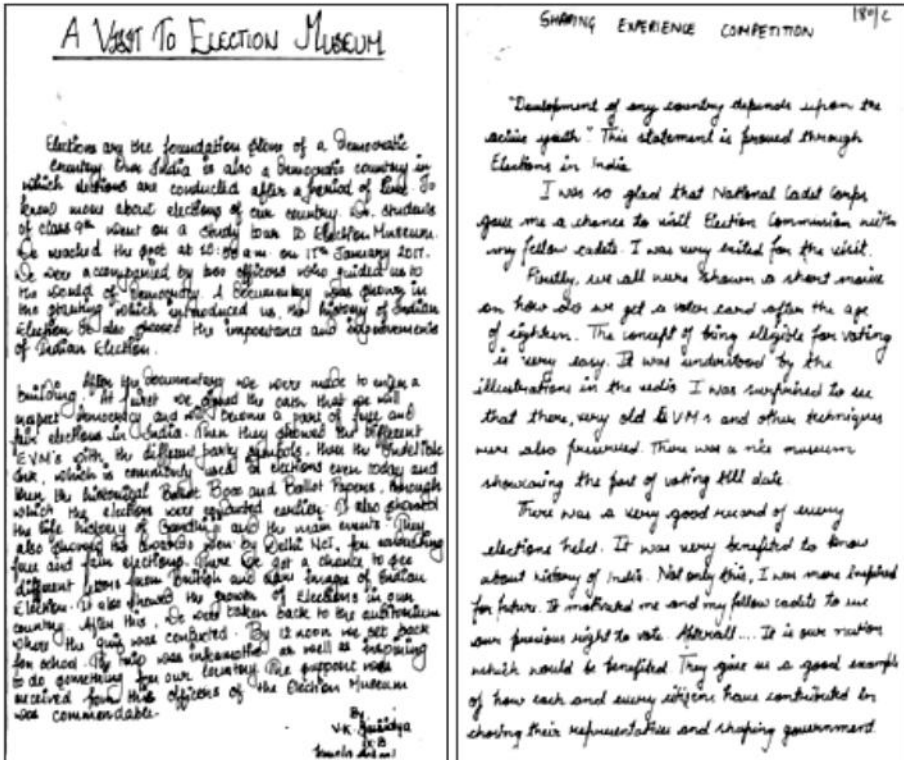 A VISIT TO ELECTION MUSEUM
Elections are the foundation stone of a Democratic
Country. Our India is also a Democratic country in
which elections are conducted after a period of time. To
know more about elections of our country. We, students
of class 9th went on a study tour to Election Museum.
We reached the spot at 10:00 a.m. on 17th January 2017.
We were accompanied by two officers who guided us to
the world of democracy. A Documentary was shown in
the starting which introduced us, the history of Indian
Election. It also showed the importance and
of Indian Election.
After the documentary we were made to enter a
building. At first we the oath that we will
respect democracy and will become a part of free and
fair elections in India. Then they showed the different
EVM's with the different party symbols, then the Indelible
Ink, which is commonly used in elections even today and
then the historical Ballot Box and Ballot Papers, through
which the elections were conducted earlier. It also showed
the life history of Gandhiji and the main events. They
also showed the awards won by Delhi NCT, for
free and fair elections. There we got a chance to see
different from British and rare images of Indian
Election. It also showed the growth of Elections in our
country. After this, we were taken back to the auditorium
where the quiz was conducted. By 12 noon we set back
for school. The trip was as well as inspiring
to do something for our country. The support was
received from the officers of the Election Museum
was commendable.
By,
V.K.
IX B
SHARING EXPERIENCE COMPETITION
180/C
"Development of any country depends upon the
active youth". This statement is proved through
Elections in India.
I was so glad that National Cadet Corps
gave me a chance to visit Election Commission with
my fellow cadets. I was very exited for the visit.
Firstly, we all were shown a short movie
on how do we get a voter card after the age
of eighteen. The concept of being elligible for voting
is very easy. It was understood by the
illustrations in the I was surprised to see
that there, very old EVMs and other techniques
were also preserved. There was a nice museum
showcasing the part of voting till date.
There was a very good record of every
elections held. It was very benefited to know
about history of India. Not only this, I was more inspired
for future. It motivated me and my fellow cadets to use
our precious right to vote. Afterall.... It is our nation
which would be benefited. They gave us a good example
of how each and every citizens have contributed in
chosing their representatives and shaping government.